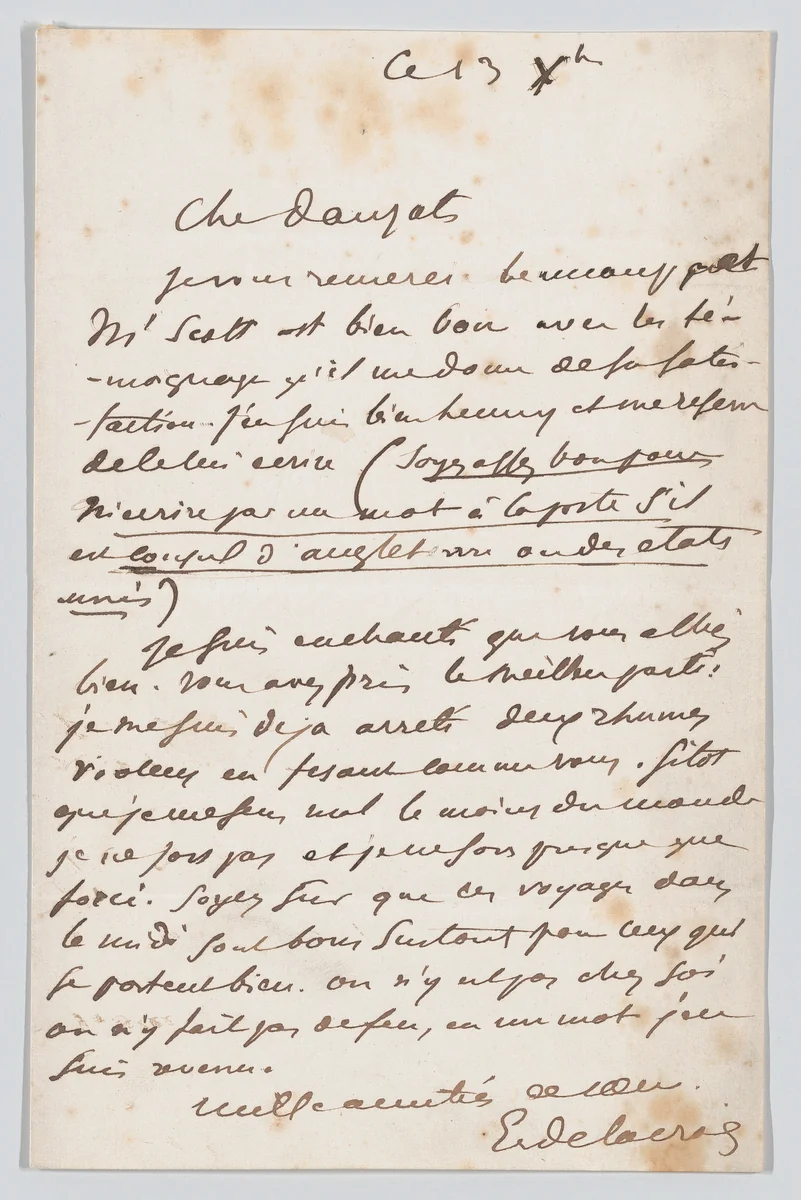 Ce 13 Xbre
Cher Dauzats
Je vous remercie beaucoup et
Mr Scott est bien bon avec les té-
-moignages qu'il me donne de sa satis-
-faction. J'en suis bien heureux et me réserve
de le lui écrire (Soyez assez bon pour
m'écrire par un mot à la poste s'il
est consul d'angleterre ou des etats
unis)
Je suis enchanté que vous alliez
bien. vous avez pris le meilleur parti:
je me suis deja arrêté deux rhumes
violens en fesant comme vous. Sitot
que je me sens mal le moins du monde
je ne sors pas et je ne sors presque que
forcé. Soyez sur que ces voyages dans
le midi sont bons surtout pour ceux qui
se portent bien. on n'y est pas chez soi
on n'y fait pas de feu, en un mot j'en
suis revenu.
mille amitiés de coeur.
EuDelacroix